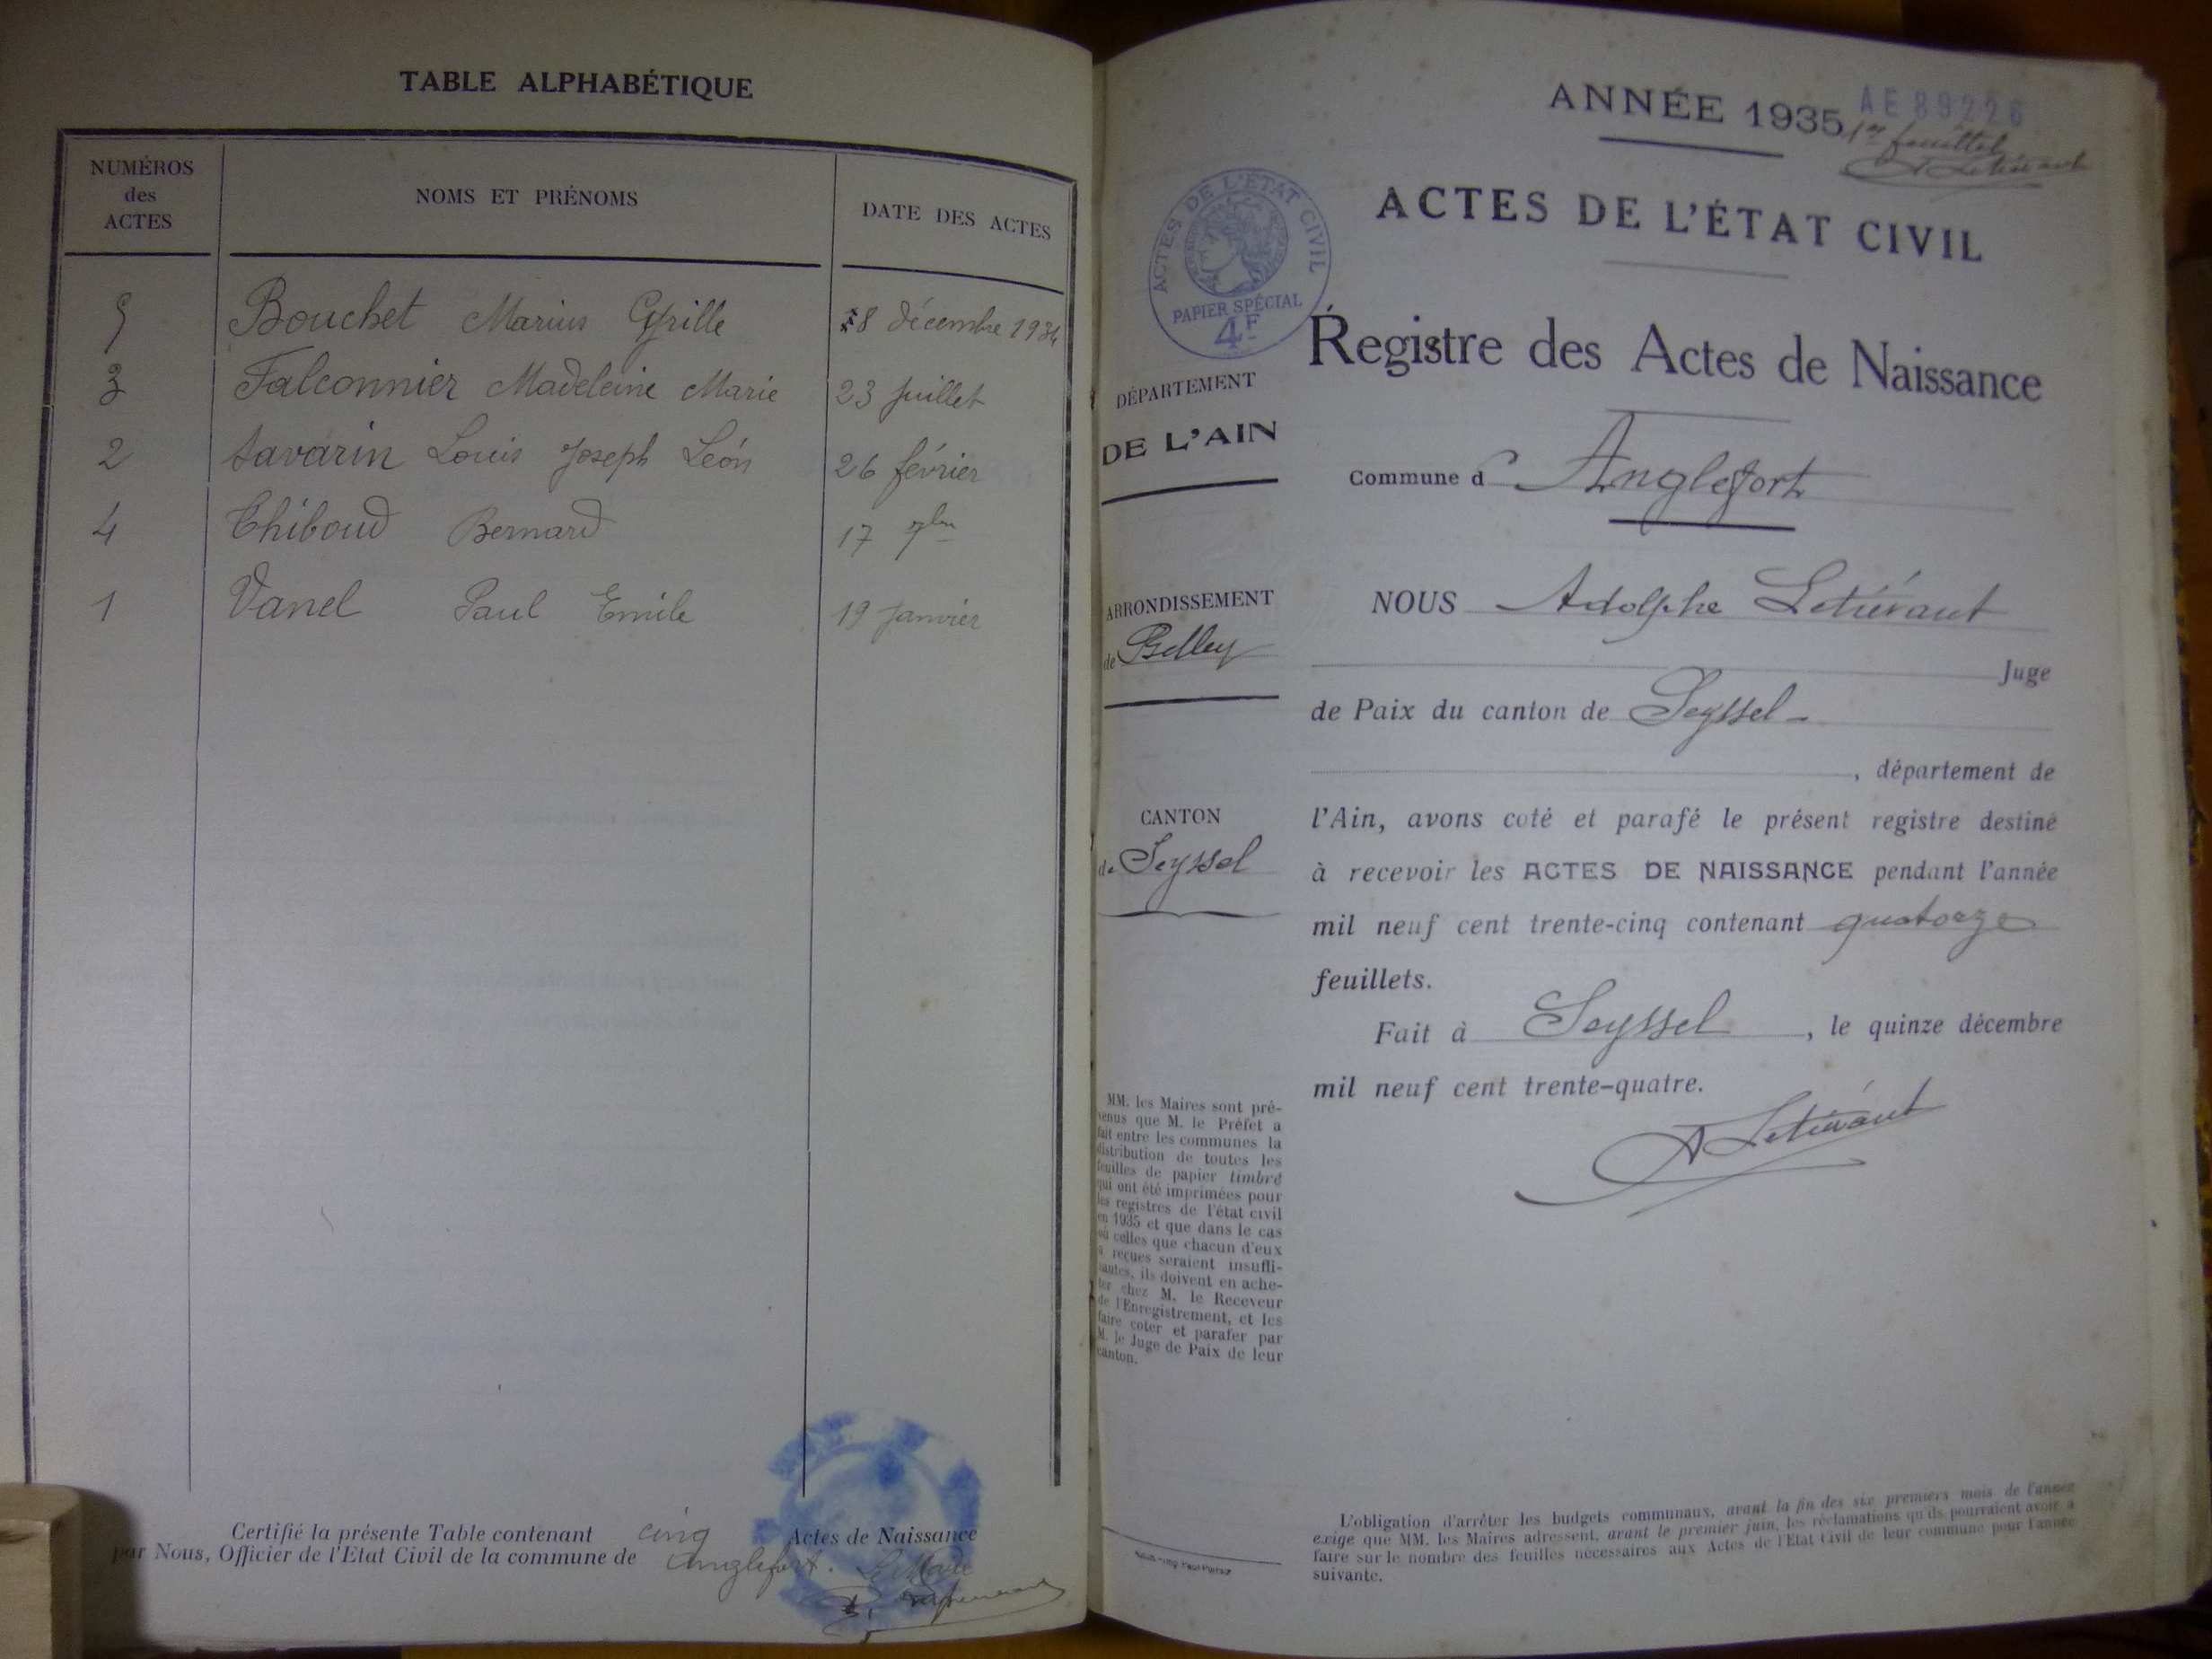 TABLE ALPHABÉTIQUE
NUMÉROS
des
ACTES
NOMS ET PRÉNOMS
DATE DES ACTES
5 Bouchet Marius Cyrille 28 décembre 1934
3 Falconnier Madeleine Marie 23 juillet
2 Savarin Louis Joseph Léon 26 février
4 Thiboud Bernard 17 7bre
1 Vanel Paul Emile 19 janvier
Certifié la présente Table contenant cinq Actes de Naissance
par Nous, Officier de l'Etat Civil de la commune de Anglefort. Le Maire
ANNÉE 1935
AE 89226
1er feuillet
A Letiévant
ACTES DE L'ÉTAT CIVIL
ACTES DE L'ÉTAT CIVIL
PAPIER SPÉCIAL
4F
Registre des Actes de Naissance
DÉPARTEMENT
DE L'AIN
Commune d' Anglefort
ARRONDISSEMENT
de Belley
NOUS Adolphe Letiévant
Juge
de Paix du canton de Seyssel
, département de
CANTON
de Seyssel
l'Ain, avons coté et parafé le présent registre destiné
à recevoir les ACTES DE NAISSANCE pendant l'année
mil neuf cent trente-cinq contenant quatorze
feuillets.
Fait à Seyssel, le quinze décembre
mil neuf cent trente-quatre.
A Letiévant
MM. les Maires sont pré-
venus que M. le Préfet a
fait entre les communes la
distribution de toutes les
feuilles de papier timbré
qui ont été imprimées pour
les registres de l'état civil
en 1935 et que dans le cas
où celles que chacun d'eux
a reçues seraient insuffi-
santes, ils doivent en ache-
ter chez M. le Receveur
de l'Enregistrement, et les
faire coter et parafer par
M. le Juge de Paix de leur
canton.
L'obligation d'arrêter les budgets communaux, avant la fin des six premiers mois de l'année
exige que MM. les Maires adressent, avant le premier juin, les réclamations qu'ils pourraient avoir à
faire sur le nombre des feuilles nécessaires aux Actes de l'Etat Civil de leur commune pour l'année
suivante.